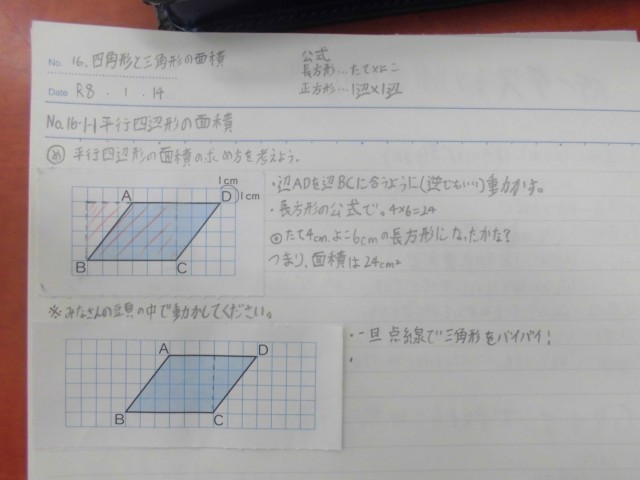 No. 16. 四角形と三角形の面積
公式
長方形…たて×よこ
正方形…1辺×1辺
Date R8 . 1 . 14
No.16-1-1 平行四辺形の面積
め 平行四辺形の面積の求め方を考えよう。
1cm
A D 1cm
B C
・辺ADを辺BCに合うように(逆でもいい)動かす。
・長方形の公式で。4×6=24
◎たて4cm、よこ6cmの長方形になったかな?
つまり、面積は24cm²
※みなさんの の中で動かしてください。
A D
B C
・一旦点線で三角形をバイバイ!
・